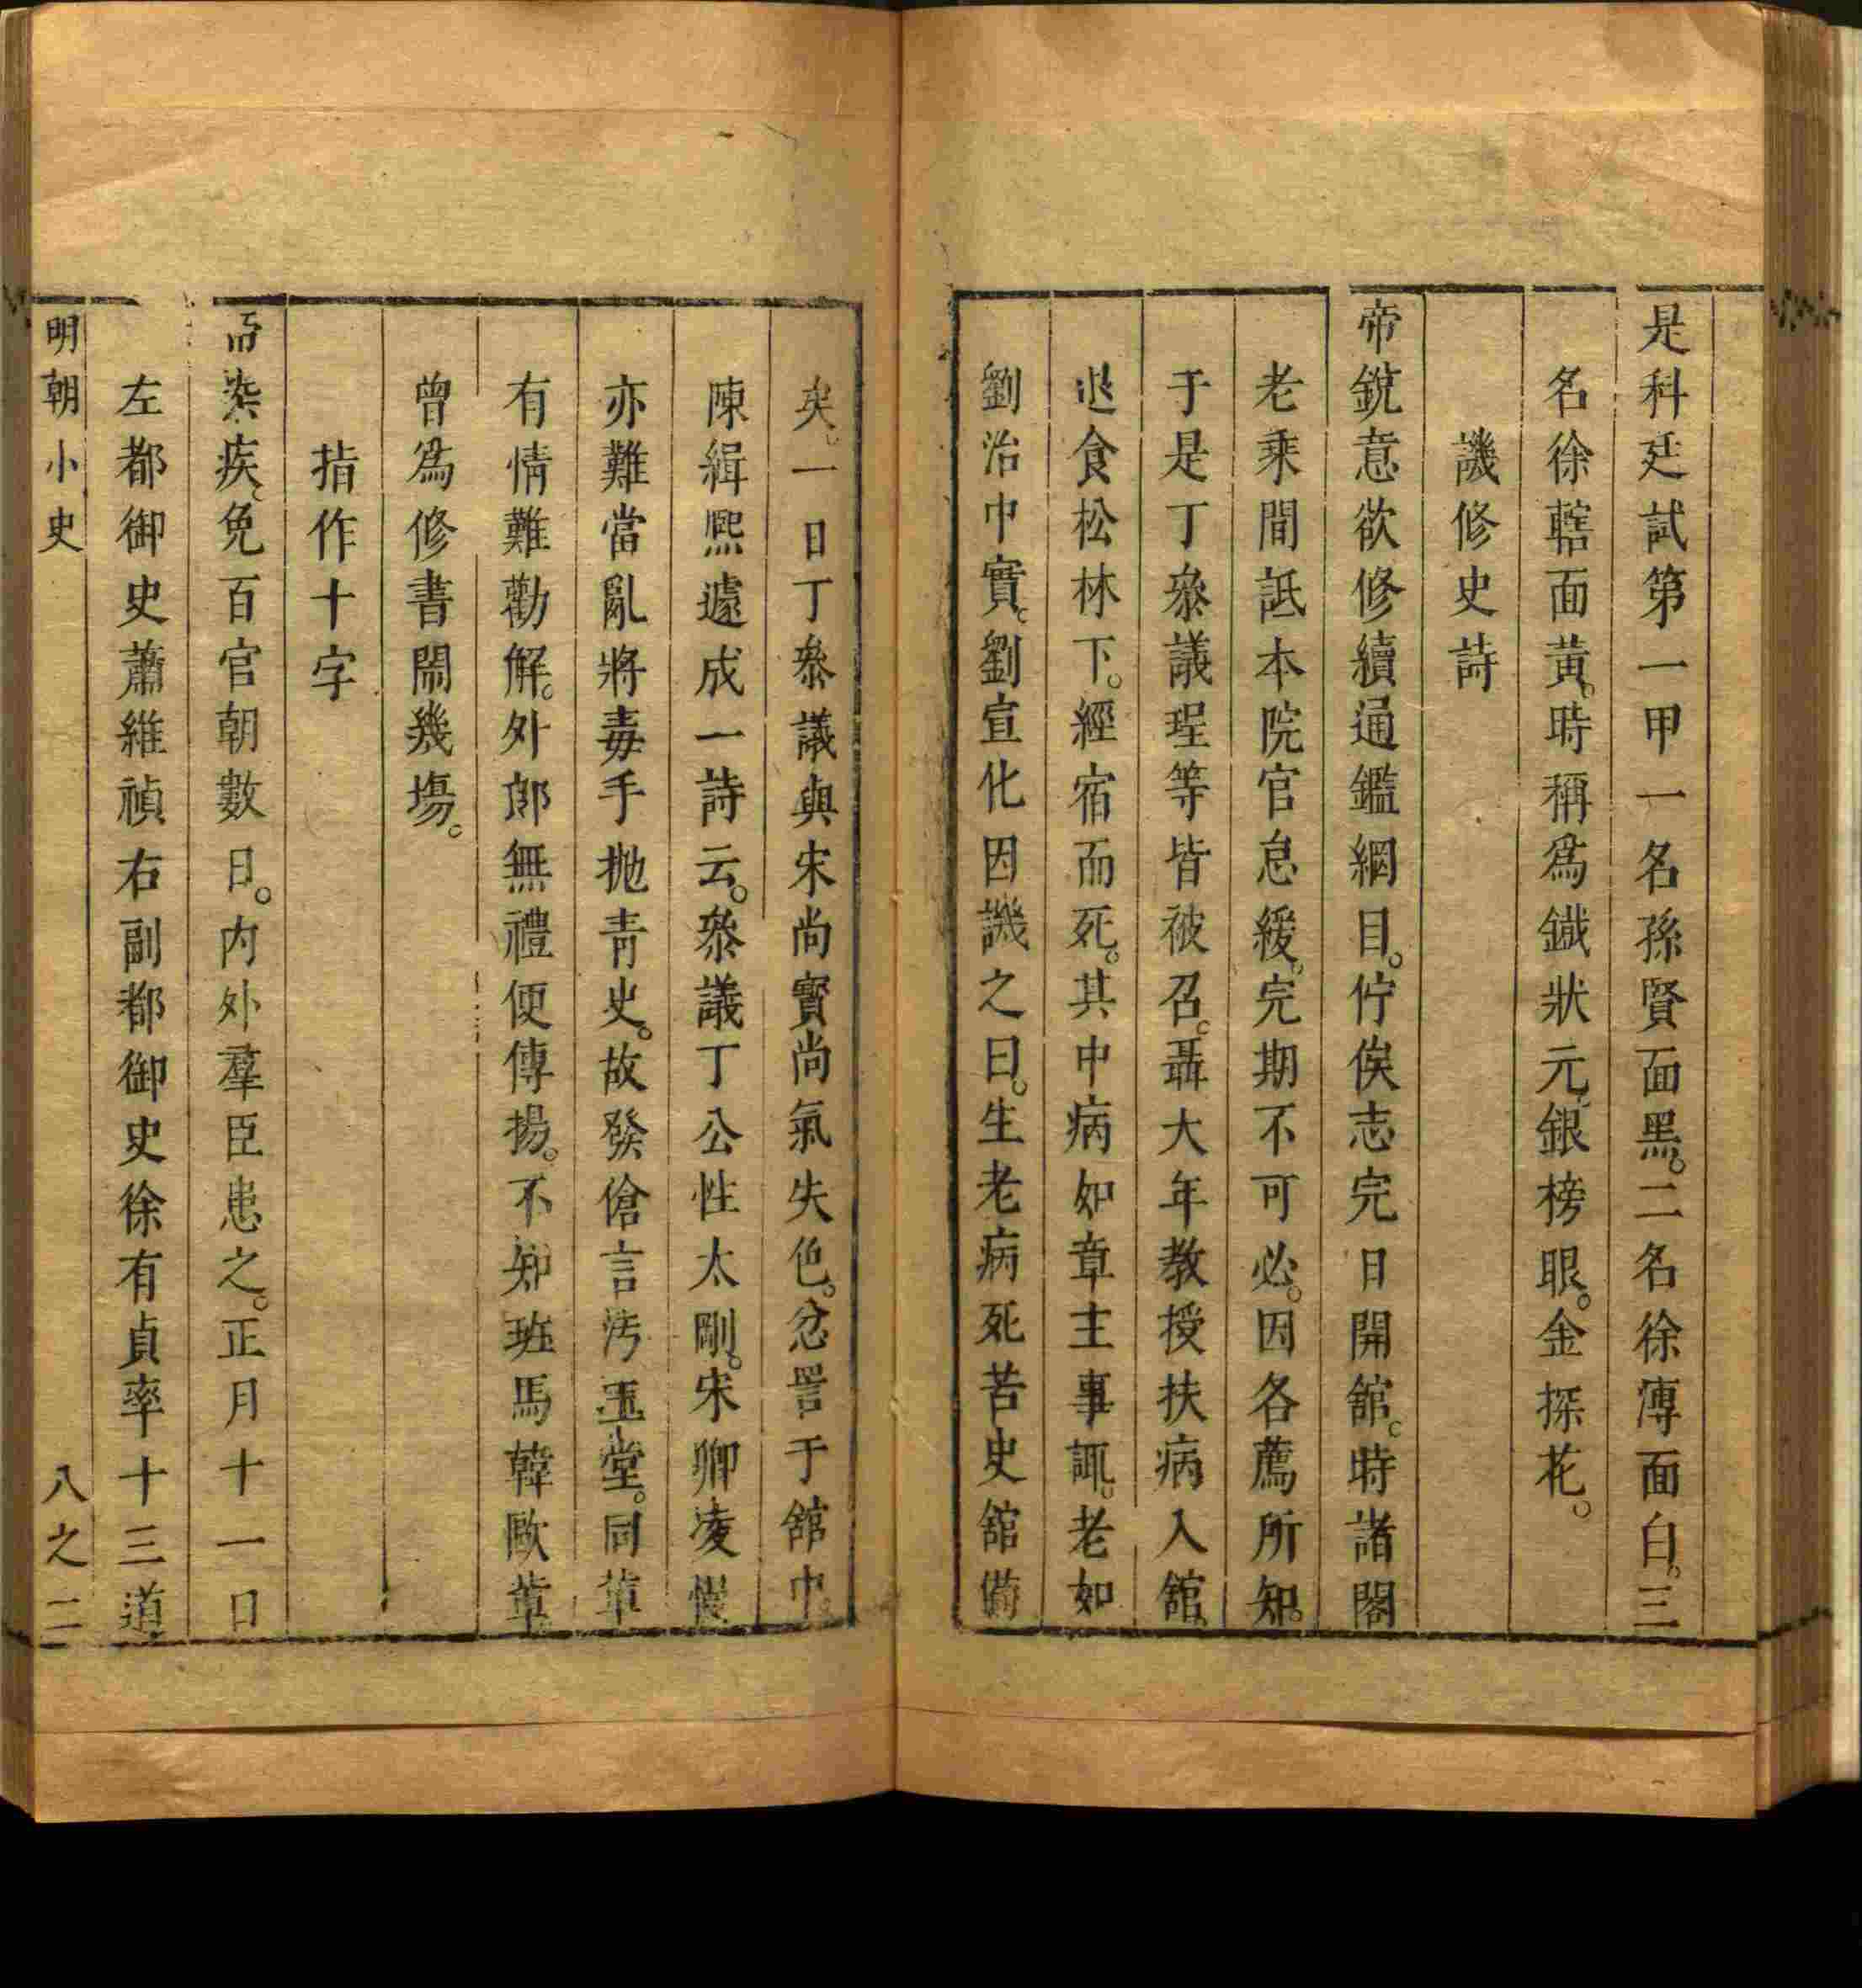 是科廷試第一甲一名孫賢面黑。二名徐溥面白。三
名徐轄面黃。時稱爲鐵狀元。銀榜眼。金探花。
譏修史詩
帝銳意欲修續通鑑綱目。佇俟志完日開舘。時諸閣
老乘間詆本院官怠緩。完期不可必。因各薦所知。
于是丁叅議珵等皆被召。聶大年教授扶病入舘。
退食松林下。經宿而死。其中病如章主事諏。老如
劉治中實。劉宣化因譏之曰。生老病死苦史舘備
矣。一日丁叅議與宋尚寳尚氣失色。忿詈于舘中。
陳緝熈遽成一詩云。叅議丁公性太剛。宋卿凌慢
亦難當亂將毒手抛青史。故發傖言汚玉堂。同輩
有情難勸解。外郎無禮便傳揚。不知班馬韓歐輩
曾爲修書鬧幾塲。
指作十字
帝染疾。免百官朝數日。内外羣臣患之。正月十一日
左都御史蕭維禎右副都御史徐有貞率十三道
明朝小史 八之二